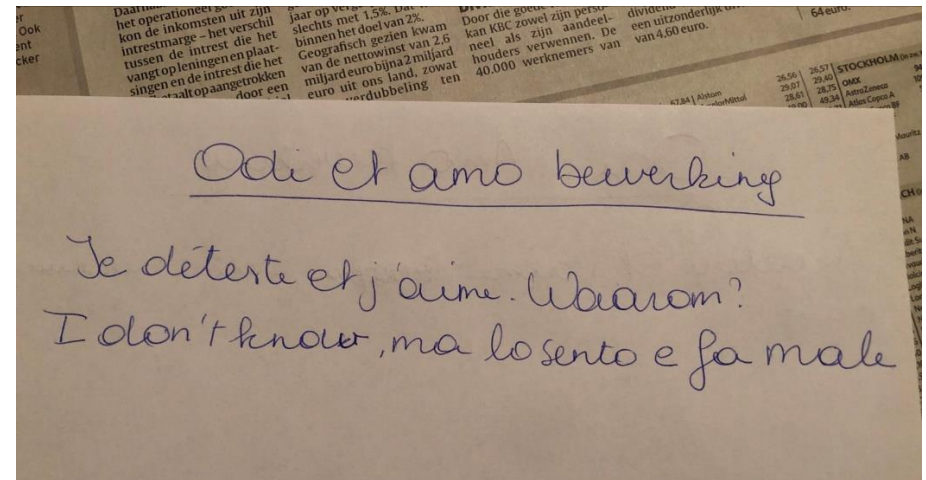 het operationeel
kon de inkomsten uit zijn
intrestmarge – het verschil
tussen de intrest die het
vangt op leningen en plaat-
singen en de intrest die het
taalt op aangetrokken
door een
slechts met 1,5%.
binnen het doel van 2%.
Geografisch gezien kwam
van de nettowinst van 2,6
miljard euro bijna 2 miljard
euro uit ons land, zowat
verdubbeling ten
Door die goede
kan KBC zowel zijn perso-
neel als zijn aandeel-
houders verwennen. De
40.000 werknemers van
dividend
een uitzonderlijk
van 4,60 euro.
64 euro.
Ook
67,84 Alstom
26,56 26,57 STOCKHOLM
29,07 29,40 OMX
28,61 28,75 AstraZeneca
49,34 Atlas Copco A
Odi et amo bewerking
Je déteste et j'aime. Waarom?
I don't know, ma lo sento e fa male